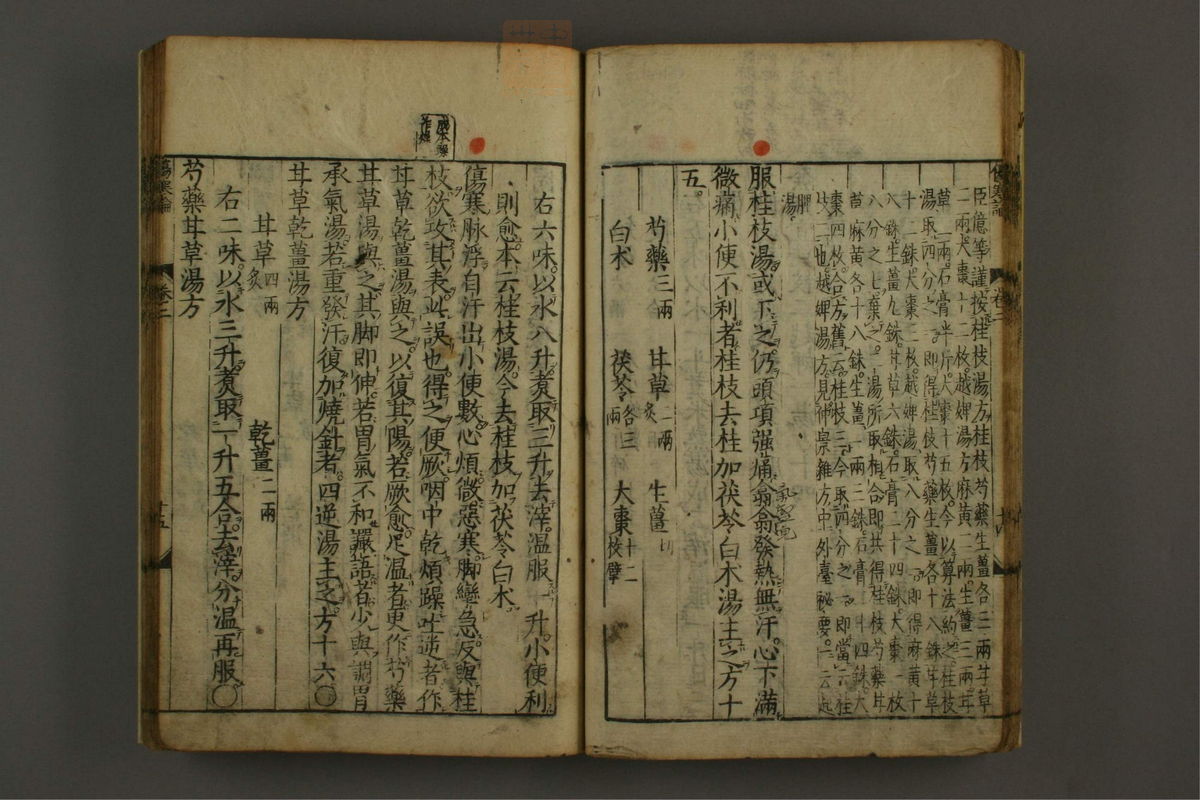 臣億等謹按桂枝湯方桂枝芍藥生薑各三兩甘草
二兩大棗十二枚越婢湯方麻黃二兩生薑三兩甘
草二兩石膏半斤大棗十五枚今以算法約之桂枝
湯取四分之一即得桂枝芍藥生薑各十八銖甘草
十二銖大棗三枚越婢湯取八分之一即得麻黃十
八銖生薑九銖甘草六銖石膏二十四銖大棗一枚
八分之七棄之二湯所取相合即共得桂枝芍藥甘
草麻黃各十八銖生薑一兩三銖石膏二十四銖大
棗四枚合方舊云桂枝三今取四分之一即當云桂
枝二也越婢湯方見仲景雜方中外臺祕要一云起
脾湯
服桂枝湯或下之仍頭項强痛翕翕發熱無汗心下滿
微痛小便不利者桂枝去桂加茯苓白朮湯主之方十
五
芍藥三兩 甘草二兩炙 生薑切
白朮 茯苓各三兩 大棗十二枚擘
傷寒論 卷二
右六味以水八升煮取三升去滓温服一升小便利
則愈本云桂枝湯今去桂枝加茯苓白朮
傷寒脉浮自汗出小便數心煩微惡寒脚攣急反與桂
枝欲攻其表此誤也得之便厥咽中乾煩躁吐逆者作
甘草乾薑湯與之以復其陽若厥愈足温者更作芍藥
甘草湯與之其脚即伸若胃氣不和讝語者少與調胃
承氣湯若重發汗復加燒針者四逆湯主之方十六
甘草乾薑湯方
甘草四兩炙 乾薑二兩
右二味以水三升煮取一升五合去滓分温再服
芍藥甘草湯方
傷寒論 卷二 十五